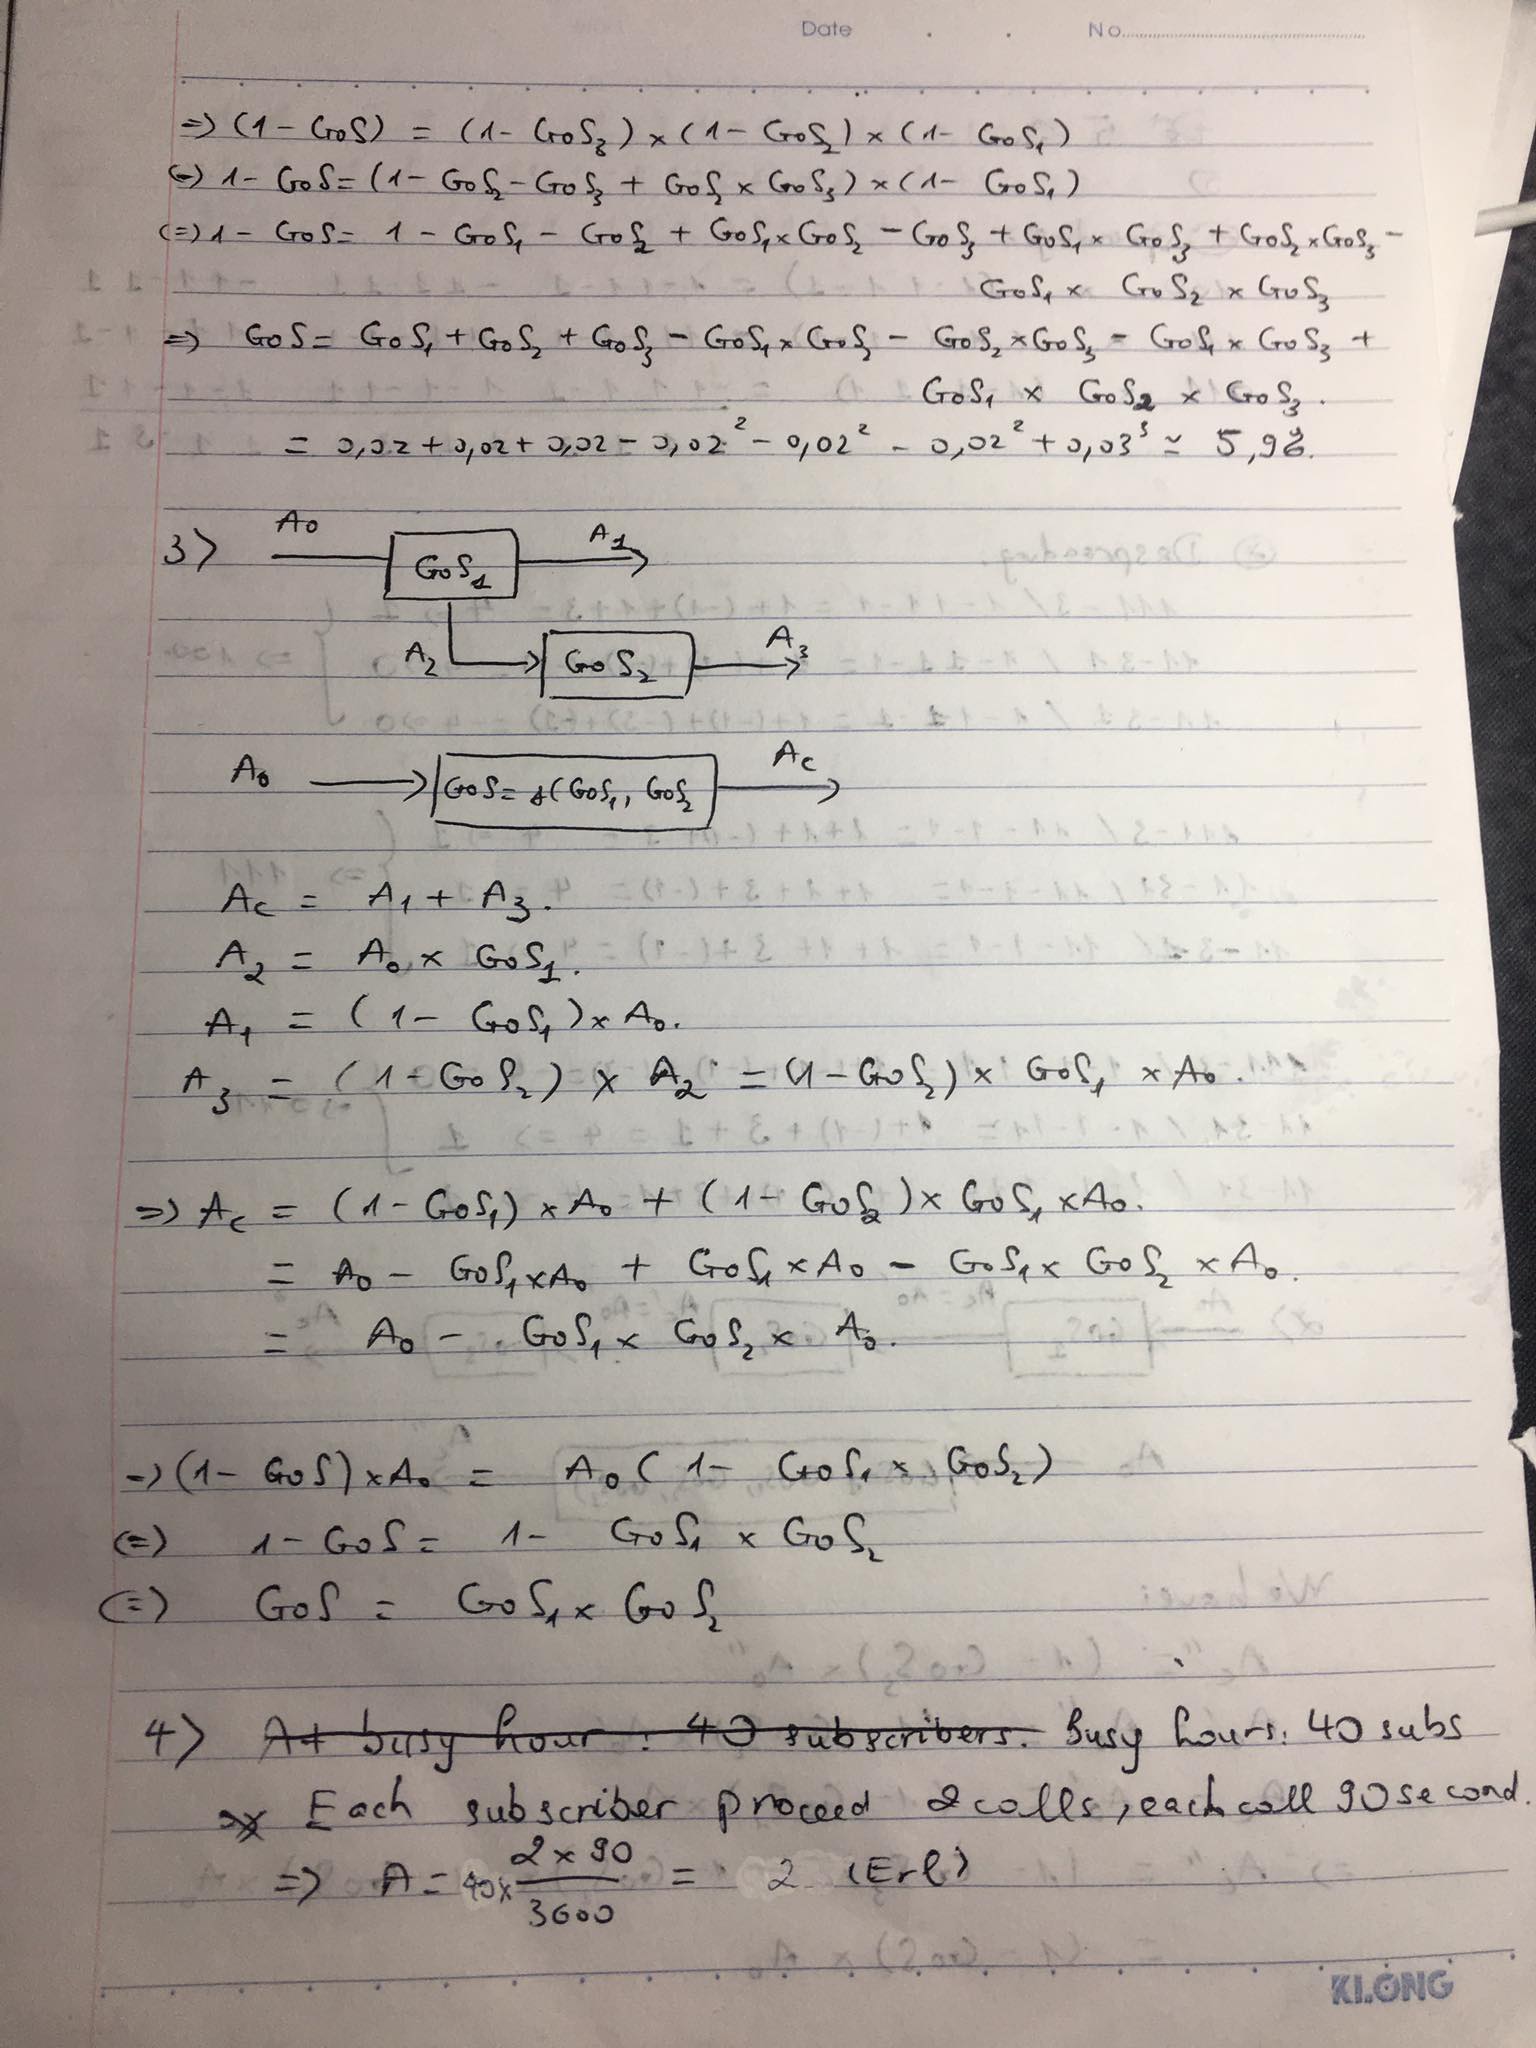 Date . . No.
=> (1 - GoS) = (1 - GoS₃) × (1 - GoS₂) × (1 - GoS₁)
(=) 1 - GoS = (1 - GoS₂ - GoS₃ + GoS₂ × GoS₃) × (1 - GoS₁)
(=) 1 - GoS = 1 - GoS₁ - GoS₂ + GoS₁ × GoS₂ - GoS₃ + GoS₁ × GoS₃ + GoS₂ × GoS₃ -
GoS₁ × GoS₂ × GoS₃
=> GoS = GoS₁ + GoS₂ + GoS₃ - GoS₁ × GoS₂ - GoS₂ × GoS₃ - GoS₁ × GoS₃ +
GoS₁ × GoS₂ × GoS₃.
= 0,02 + 0,02 + 0,02 - 0,02² - 0,02² - 0,02² + 0,03³ ≃ 5,9%.
3) A₀ GoS₁ A₁
A₂ GoS₂ A₃
A₀ GoS = f(GoS₁, GoS₂ Ac
Ac = A₁ + A₃.
A₂ = A₀ × GoS₁.
A₁ = (1 - GoS₁) × A₀.
A₃ = (1 - GoS₂) × A₂ = (1 - GoS₂) × GoS₁ × A₀.
=> Ac = (1 - GoS₁) × A₀ + (1 - GoS₂) × GoS₁ × A₀.
= A₀ - GoS₁ × A₀ + GoS₁ × A₀ - GoS₁ × GoS₂ × A₀.
= A₀ - GoS₁ × GoS₂ × A₀.
=> (1 - GoS) × A₀ = A₀ (1 - GoS₁ × GoS₂)
(=) 1 - GoS = 1 - GoS₁ × GoS₂
(=) GoS = GoS₁ × GoS₂
4) At busy hour : 40 subscribers. Busy hours: 40 subs
Each subscriber proceed 2 calls, each call 90 second.
=> A = 40 × 2 × 90 / 3600 = 2 (Erl)
KLONG